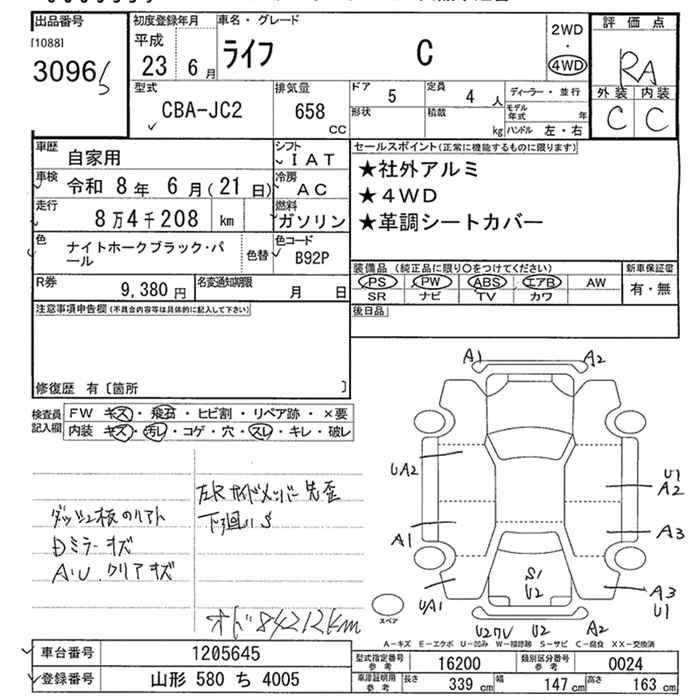 出品番号
[1088]
3096
初度登録年月
平成
23 6月
車名・グレード
ライフ C
2WD
・
4WD
評価点
RA
外装 内装
C C
型式
CBA-JC2
排気量
658
CC
ドア 5
定員 4 人
形状
積載 kg
ディーラー・並行
モデル年式 年
ハンドル 左・右
車歴
自家用
シフト
IAT
車検 令和 8年 6月(21日)
冷房
AC
走行
8万4千208 km
燃料
ガソリン
色
ナイトホークブラック・パール
色替
色コード
B92P
R券
9,380円
名変通知期限
月 日
セールスポイント(正常に機能するものに限ります)
★社外アルミ
★4WD
★革調シートカバー
装備品(純正品に限り○をつけてください)
PS PW ABS エアB AW
SR ナビ TV カワ
新車保証書
有・無
後日品
注意事項申告欄(不具合内容等は具体的に記入して下さい)
修復歴 有〔箇所 〕
検査員記入欄
FW キズ・飛石・ヒビ割・リペア跡・×要
内装 キズ・汚レ・コゲ・穴・スレ・キレ・破レ
左Rサイドメンバー先歪
下廻りS
ダッシュ板のリフト
Dミラーキズ
A・U、クリアキズ
オド84212km
A1 A2
UA2
U1
A2
A1
A3
UA1
S1
U2
A3
U1
U2 A2
スペア
A-キズ E-エクボ U-凹み W-補修跡 S-サビ C-腐食 XX-交換済
車台番号 1205645
登録番号 山形 580 ち 4005
型式指定番号 参考 16200
類別区分番号 参考 0024
車庫証明用 参考 長さ 339 cm 幅 147 cm 高さ 163 cm